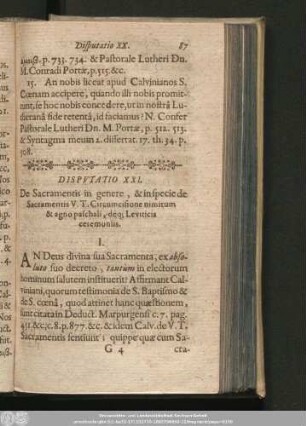 Disputatio XX. 87
p. 733. 734. & Pastorale Lutheri Dn.
M. Conradi Portæ, p. 515 &c.
15. An nobis liceat apud Calvinianos S.
Cœnam accipere, quando illi nobis promit-
tunt, se hoc nobis concedere, ut in nostrâ Lu-
therana fide retentâ, id faciamus? N. Confer
Pastorale Lutheri Dn. M. Portæ, p. 512. 513.
& Syntagma meum 2. dissertat. 17. th. 34. p.
508.
DISPUTATIO XXI.
De Sacramentis in genere, & in specie de
Sacramentis V. T. Circumcisione nimirum
& agno paschali, deq; Leviticis
ceremoniis.
I.
AN Deus divina sua Sacramenta, ex abso-
luto suo decreto, tantùm in electorum
hominum salutem instituerit? Affirmant Cal-
viniani, quorum testimonia de S. Baptismo &
de S. cœnâ, quod attinet hanc quæstionem,
sunt citata in Deduct. Marpurgensi c. 7. pag.
411. &c, c. 8. p. 877. &c. & idem Calv. de V. T.
Sacramentis sentiunt: quippe quæ cum Sa-
G 4 cra-